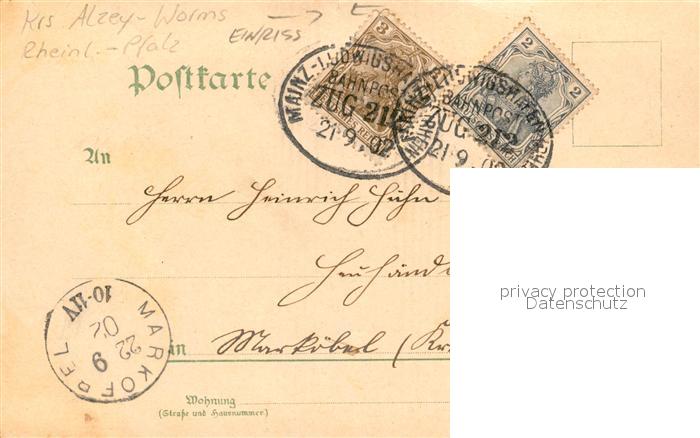 Krs Alzey-Worms
Rheinl.-Pfalz
EINRISS
Postkarte
3
2
2
MAINZ-LUDWIGSHAFEN
BAHNPOST
ZUG 212
21.9.02
LUDWIGSHAFEN
BAHNPOST
ZUG 212
21.9.02
An
Herrn Heinrich Huhn
Heuhänd
in Markobel (Kr
MARKOEBEL
22
9
02
10-11V
Wohnung
(Straße und Hausnummer)
privacy protection
Datenschutz